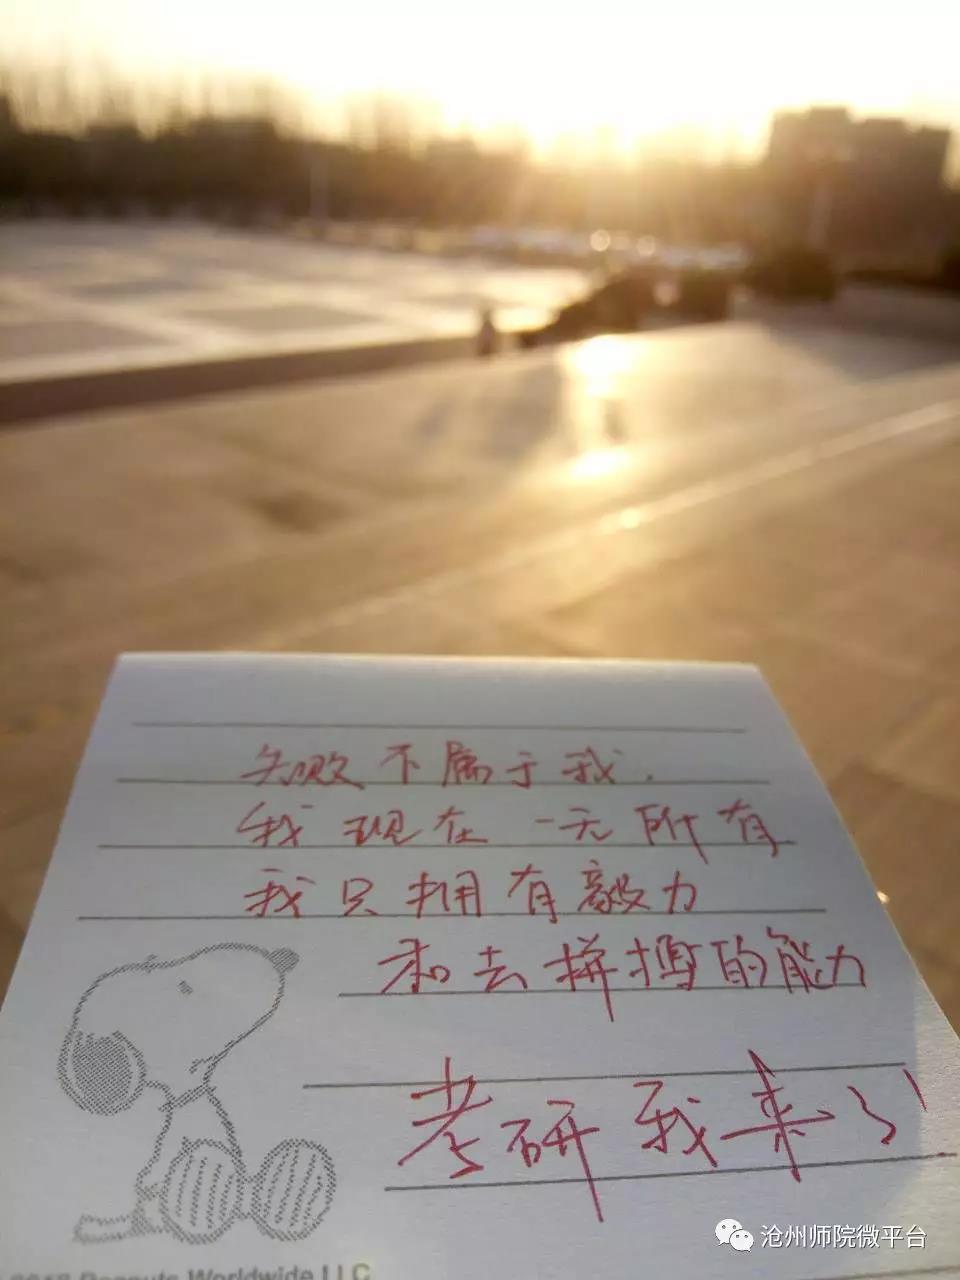 失败不属于我.
我现在一无所有
我只拥有毅力
和去拼搏的能力
考研我来了!
Peanuts Worldwide LLC
沧州师院微平台